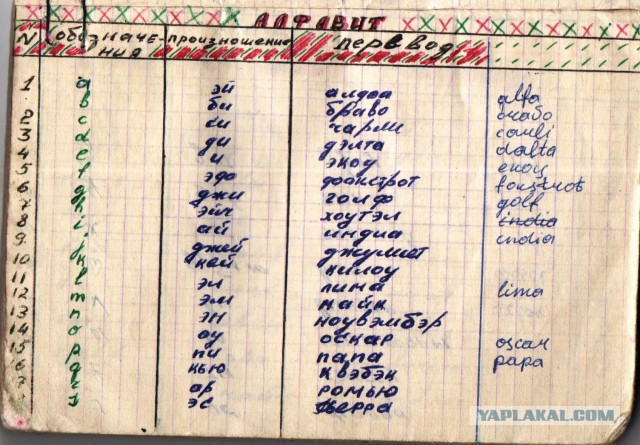 АЛФАВИТ
N обозначения произношение перевод
1 a эй алфа alfa
2 b би браво
3 c си чарли carli
4 d ди дэлта dalta
5 e и экоу
6 f эф фокстрот
7 g джи голф golf
8 h эйч хоутэл india
9 i ай индиа india
10 j джей джулиет
11 k кей килоу
12 l эл лима lima
13 m эм майк
14 n эн ноувэмбэр
15 o оу оскар oscar
6 p пи папа papa
7 q кью квэбэк
ар ромью
эс
YAPLAKAL.COM